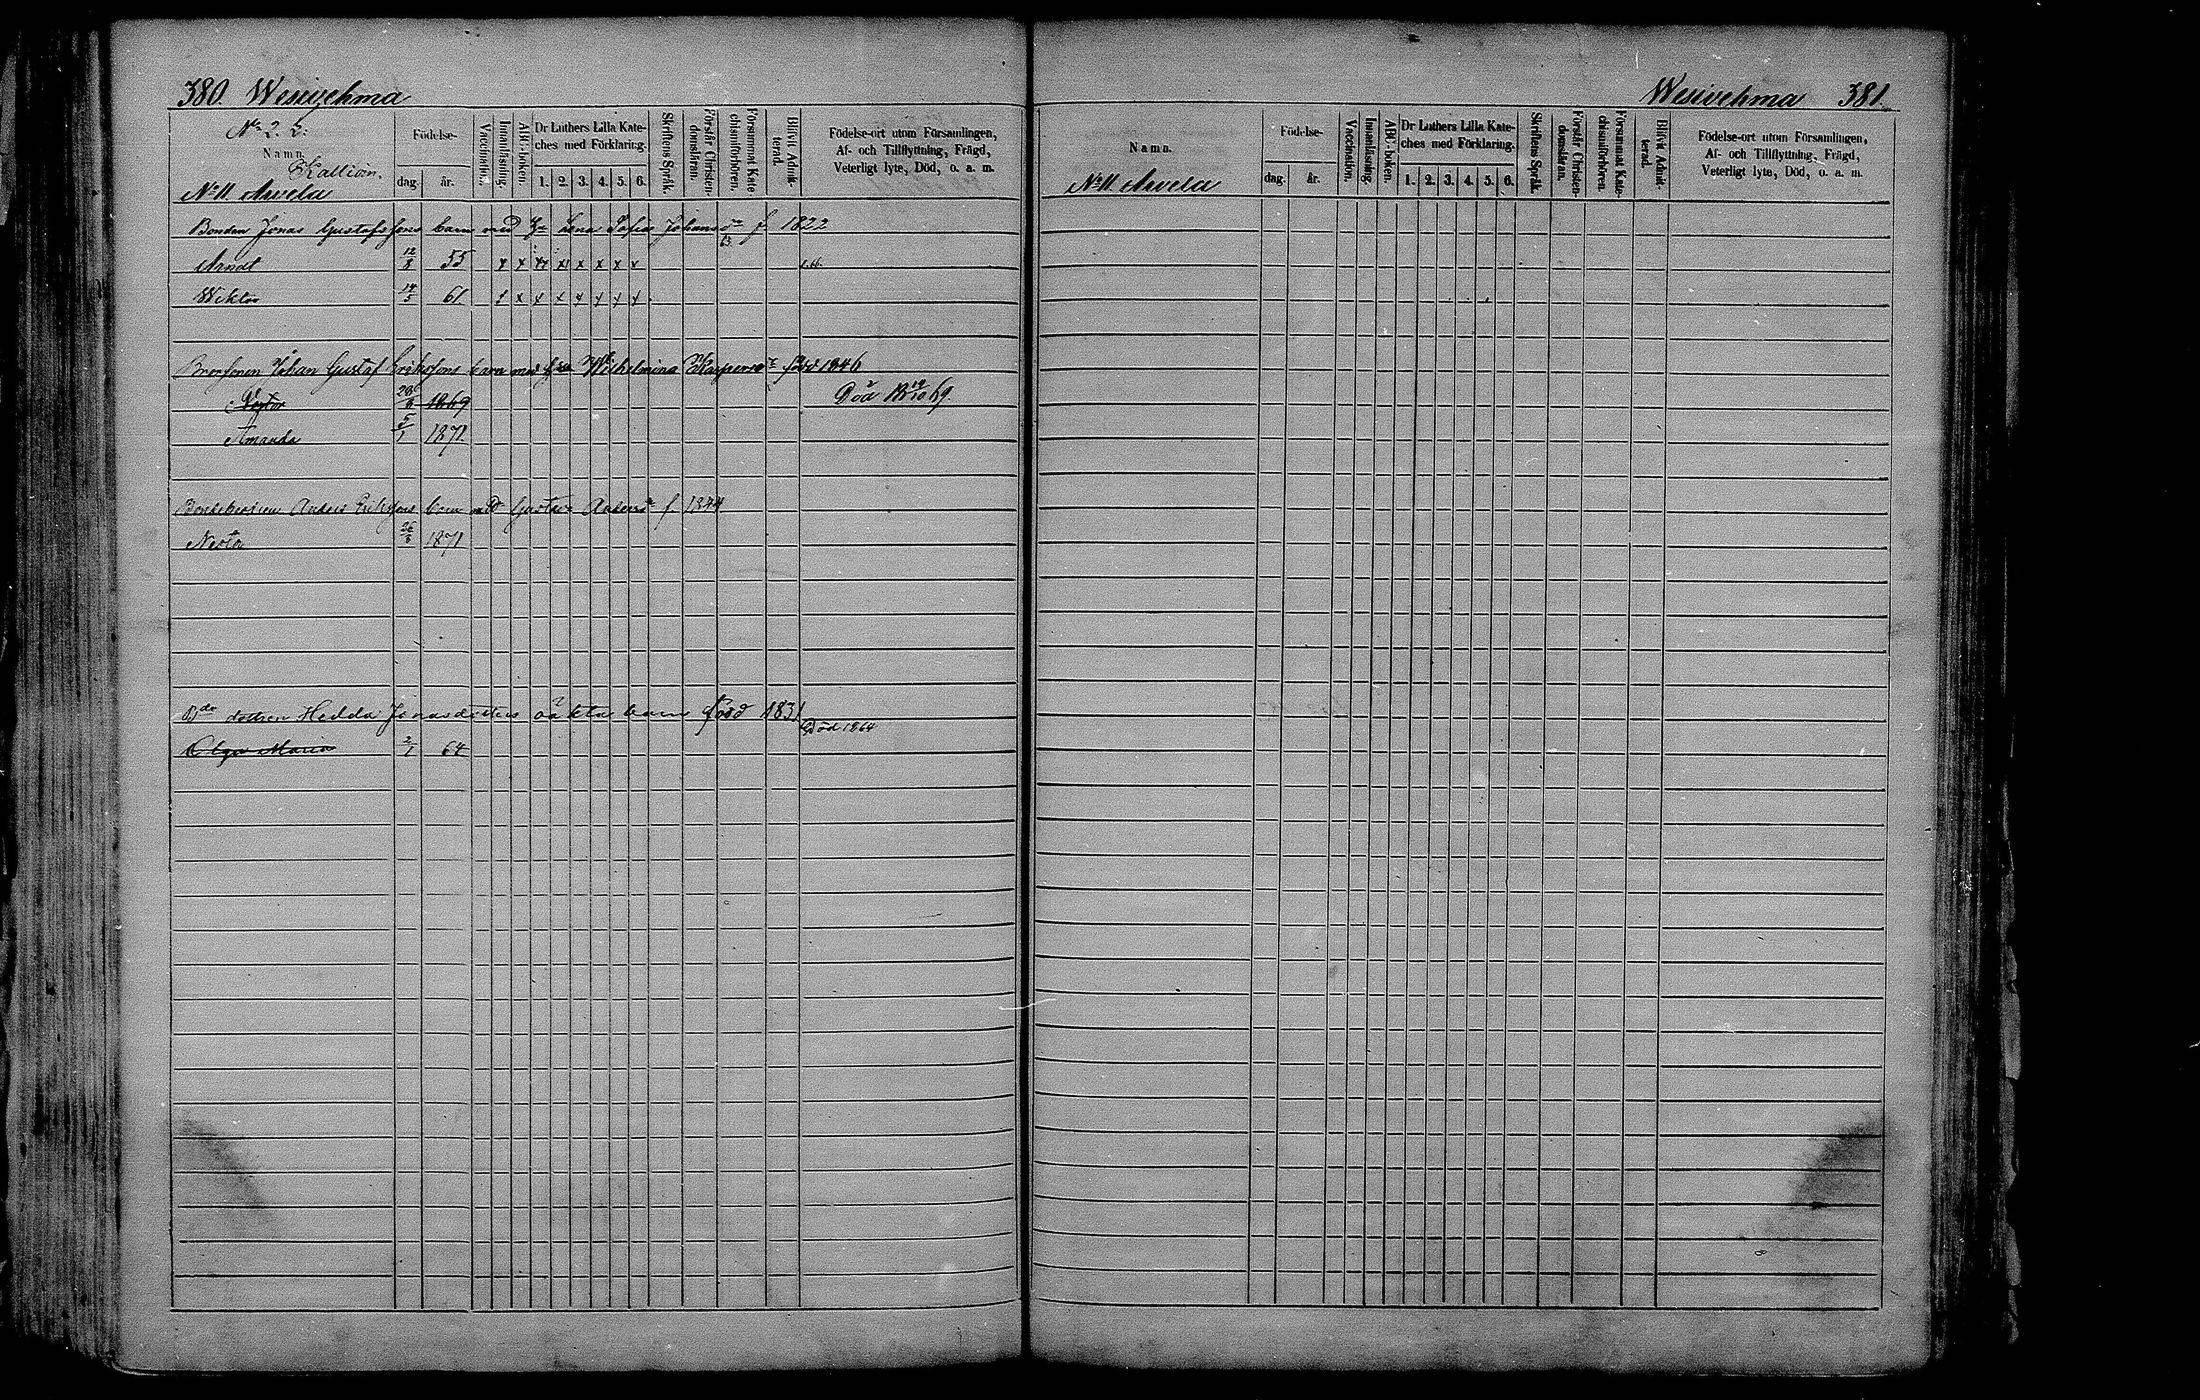 380. Wesivehma
No 2. 2.
Namn.
Kallioin.
No 11. Arvela
Födelse-
dag. år.
Vaccination.
Innanläsning.
ABC-boken.
Dr Luthers Lilla Kate-
ches med Förklaring.
1. 2. 3. 4. 5. 6.
Skriftens Språk.
Förstår Christen-
domsläran.
Försummat Kate-
chismiförhören.
Blifvit Admit-
terad.
Födelse-ort utom Församlingen,
Af- och Tillflyttning, Frägd,
Veterligt lyte, Död, o. a. m.
Bonden Jonas Gustafssons barn med H. Lena Sofia Johansdr f 1822
12/8 55 x x x x x x x
Wiktor 14/5 61 x x x x x x x
Brorsonen Johan Gustaf Erikssons barn med Wilhelmina Kaspersdr född 1846
Nestor 1869 Död 19/10 69.
Amanda 5/1 1871.
Anders Erikssons barn med Gustava Andersdr f. 1844
Nestor 26/8 1871
Bde dottren Hedda Jonasdotters oäkta barn född 1831
Olga Maria 2/1 64 Död 1864
Wesivehma 381.
Namn.
No 11. Arvela
Födelse-
dag. år.
Vaccination.
Innanläsning.
ABC-boken.
Dr Luthers Lilla Kate-
ches med Förklaring.
1. 2. 3. 4. 5. 6.
Skriftens Språk.
Förstår Christen-
domsläran.
Försummat Kate-
chismiförhören.
Blifvit Admit-
terad.
Födelse-ort utom Församlingen,
Af- och Tillflyttning, Frägd,
Veterligt lyte, Död, o. a. m.